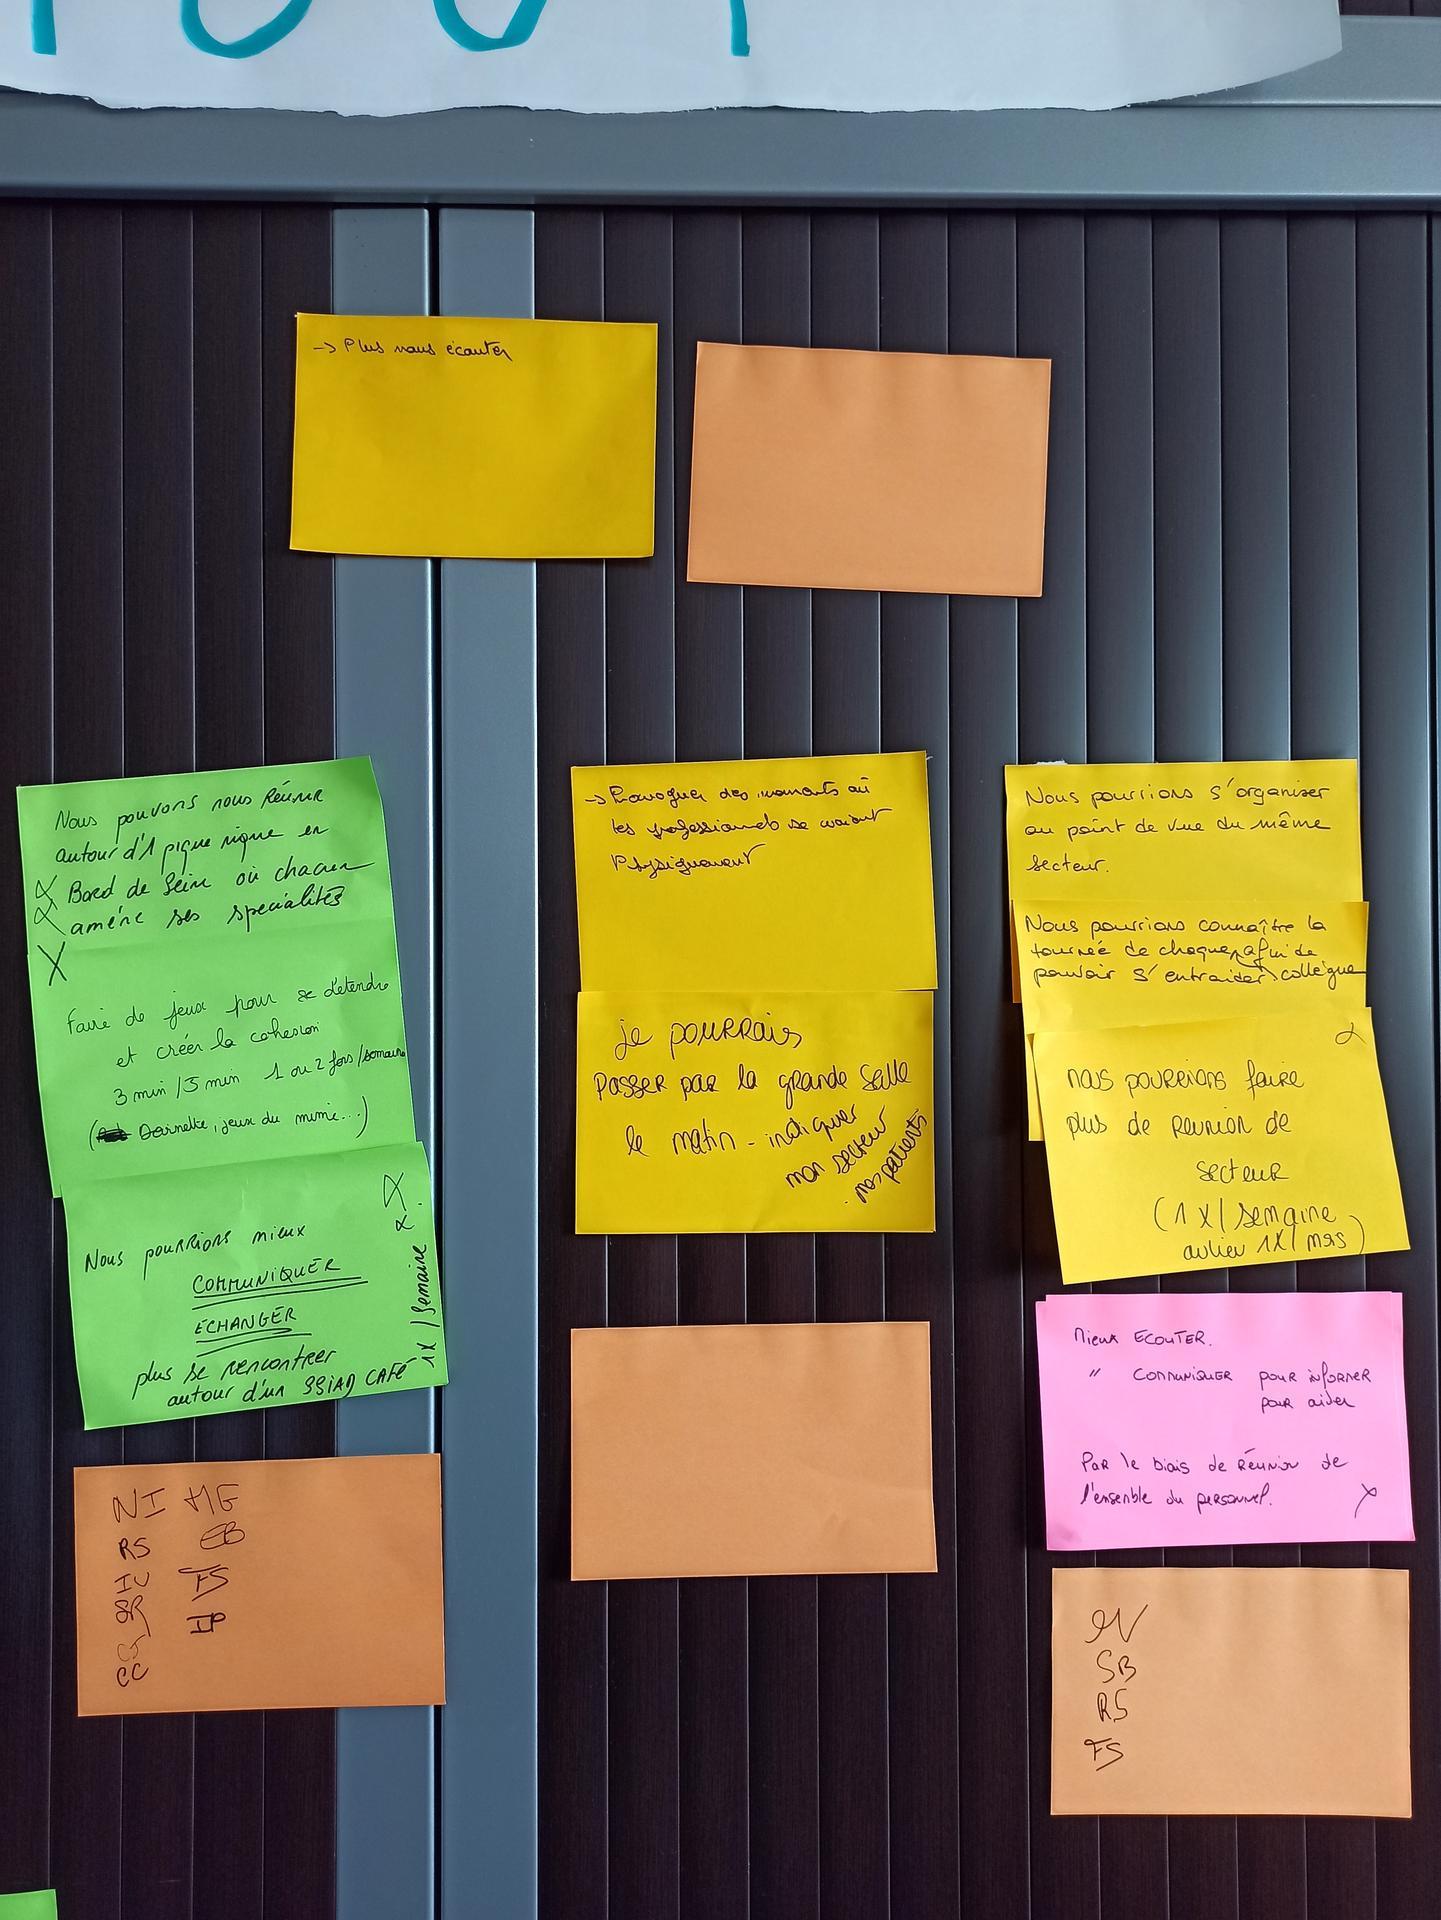 -> Plus nous écouter
Nous pouvons nous Réunir
autour d'1 pique nique en
Bord de Seine où chacun
amène ses spécialités
Faire de jeux pour se détendre
et créer la cohesion
3 min / 5 min 1 ou 2 fois / semaine
( Devinette, jeux du mime...)
Nous pourrions mieux
COMMUNIQUER
ECHANGER
plus se rencontrer
autour d'un SSIAD CAFÉ
1X / Semaine
NI ME
RS EB
IU FS
SR IP
CC
-> Provoquer des moments où
les professionnels se voient
Physiquement
je pourrais
Passer par la grande Salle
le matin - indiquer
mon secteur
. mes patients
Nous pourrions s'organiser
au point de vue du même
secteur.
Nous pourrions connaître la
tournée de chaque collègue afin de
pouvoir s'entraider.
nous pourrions faire
plus de Reunion de
secteur
(1 X / semaine
aulieu 1X / mois)
Mieux ECOUTER.
" COMMUNIQUER pour informer
pour aider
Par le biais de Réunion de
l'ensemble du personnel.
SB
RS
FS